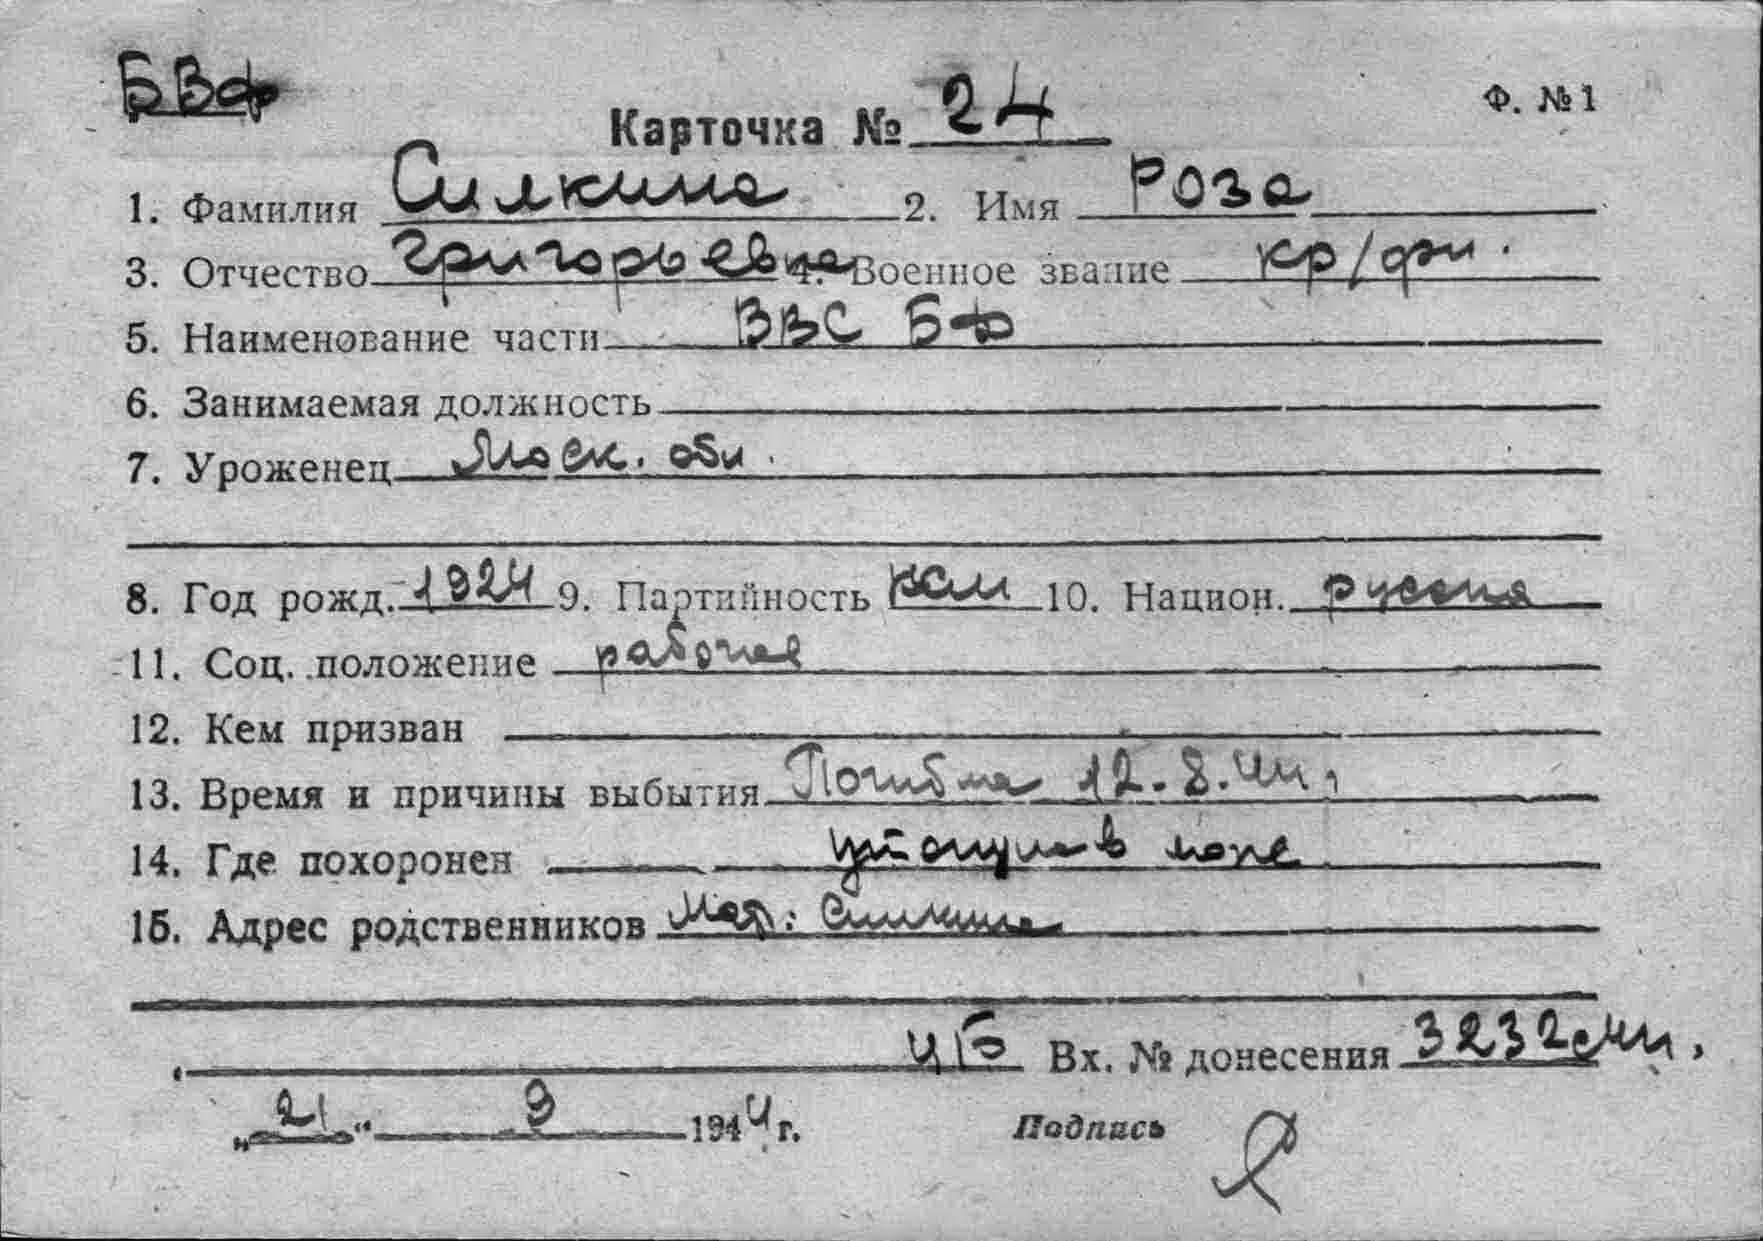 БВФ
Ф. № 1
Карточка № 24
1. Фамилия Силкина 2. Имя Роза
3. Отчество Григорьевна 4. Военное звание кр/фл.
5. Наименование части ВВС БФ
6. Занимаемая должность
7. Уроженец Моск. обл.
8. Год рожд. 1924 9. Партийность ксм 10. Национ. русская
11. Соц. положение рабочая
12. Кем призван
13. Время и причины выбытия Погибла 12.8.44
14. Где похоронен утонула в море
15. Адрес родственников Мать: Силкина
Вх. № донесения 3232
„21“ 9 1944 г. Подпись